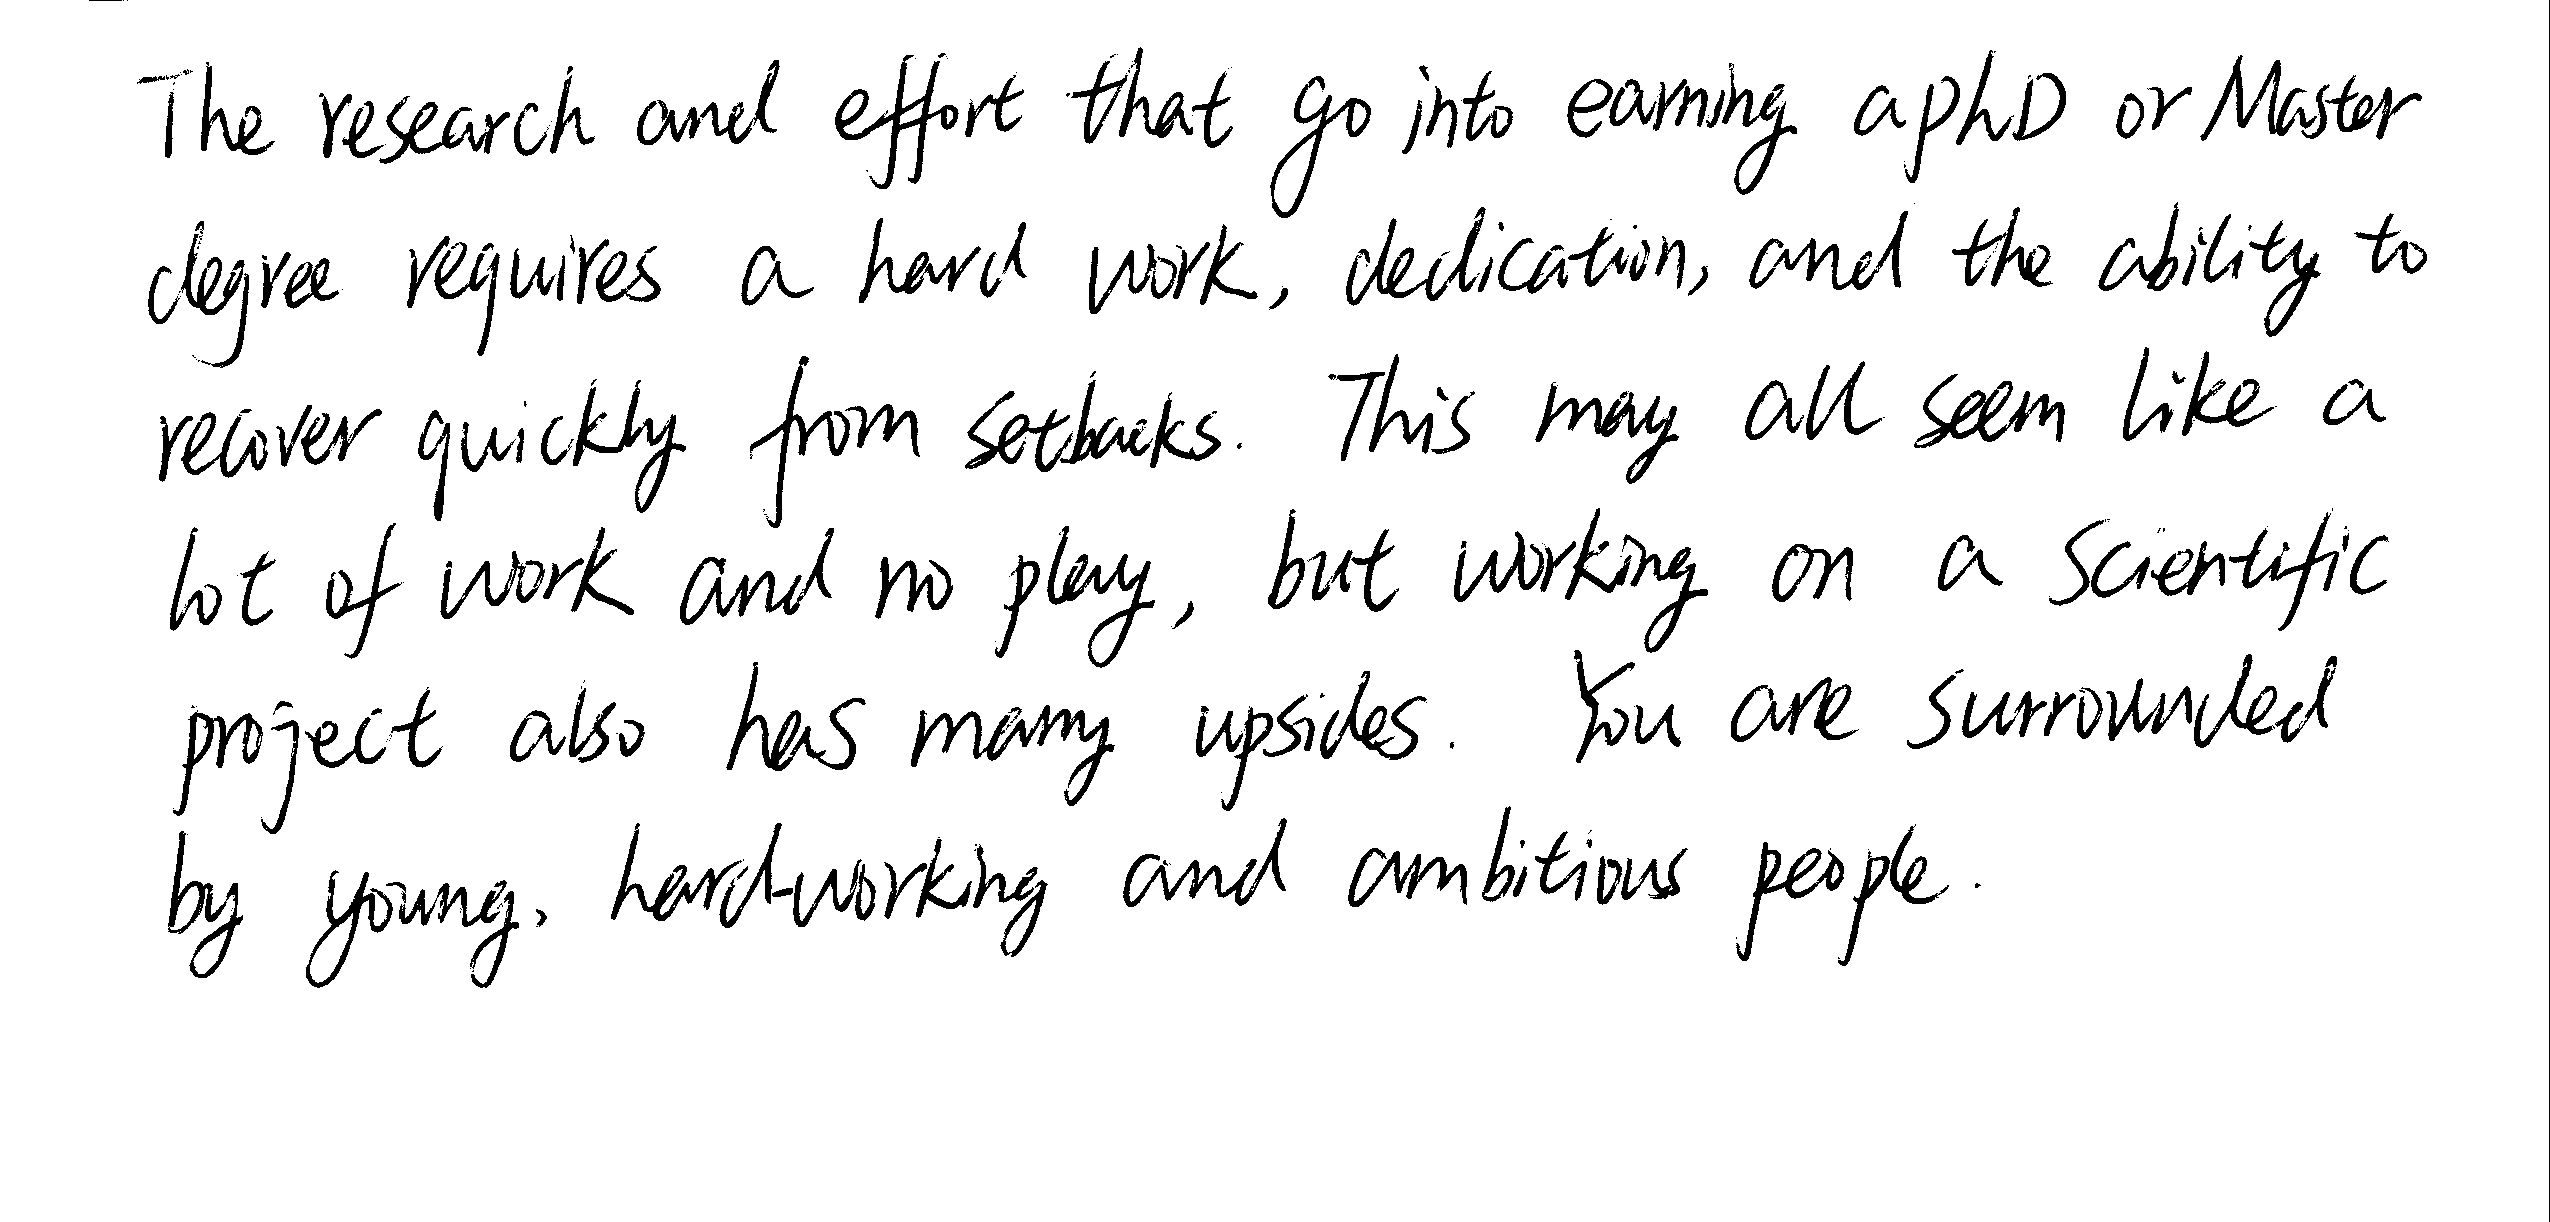 The research and effort that go into earning a phD or Master
degree requires a hard work, dedication, and the ability to
recover quickly from setbacks. This may all seem like a
lot of work and no play, but working on a scientific
project also has many upsides. You are surrounded
by young, hard-working and ambitious people.